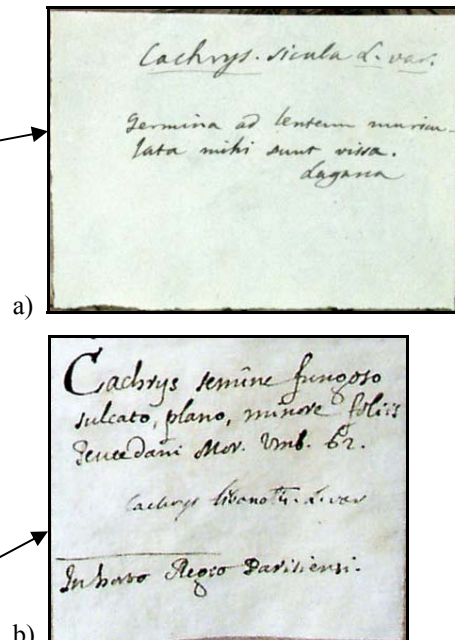 Cachrys. sicula L. var.
Germina ad lentem muricu-
lata mihi sunt vissa.
Lagasca
a)
Cachrys semine fungoso
sulcato, plano, minore foliis
Peucedani Mor. Vmb. 62.
Cachrys libanotis. L. var
In horto Regio Parisiensi.
b)